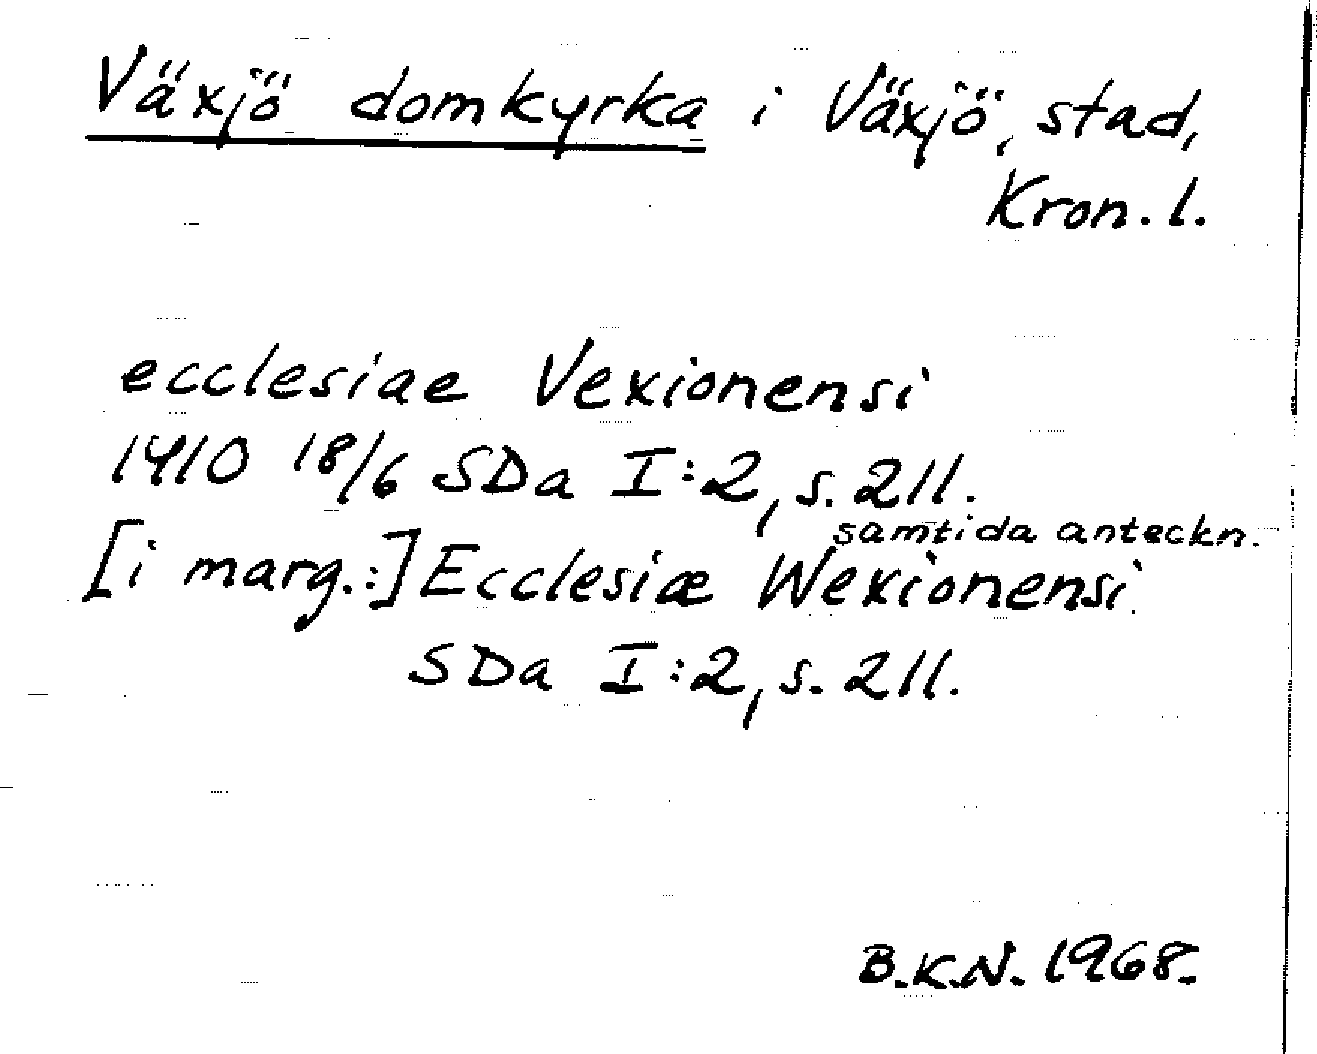 Växjö domkyrka i Växjö, stad,
Kron. l.
ecclesiae Vexionensi
1410 18/6 SDa I:2, s. 211.
samtida anteckn.
[i marg.:] Ecclesiæ Wexionensi
SDa I:2, s. 211.
B.K.N. 1968.